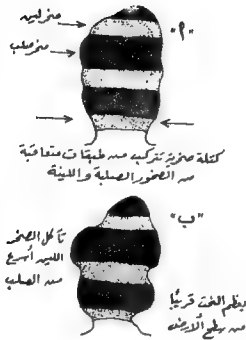 "أ"
صخر لين
صخر صلب
كتلة صخرية تتركب من طبقات متعاقبة
من الصخور الصلبة واللينة
"ب"
تآكل الصخر
اللين أسرع
من الصلب
يعظم النحت قريبًا
من سطح الأرض